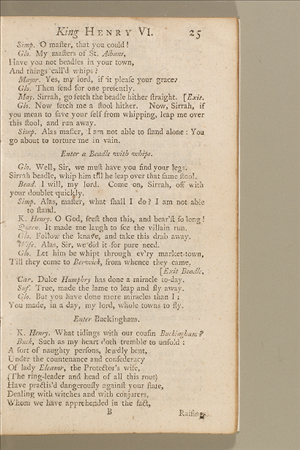 King HENRY VI. 25
Simp. O master, that you could!
Glo. My masters of St. Albans,
Have you not beadles in your town,
And things call'd whips?
Mayor. Yes, my lord, if it please your grace.
Glo. Then send for one presently.
May. Sirrah, go fetch the beadle hither straight. [Exit.
Glo. Now fetch me a stool hither. Now, Sirrah, if
you mean to save your self from whipping, leap me over
this stool, and run away.
Simp. Alas master, I am not able to stand alone: You
go about to torture me in vain.
Enter a Beadle with whips.
Glo. Well, Sir, we must have you find your legs.
Sirrah beadle, whip him till he leap over that same stool.
Bead. I will, my lord. Come on, Sirrah, off with
your doublet quickly.
Simp. Alas, master, what shall I do? I am not able
to stand.
K. Henry. O God, seest thou this, and bear'st so long!
Queen. It made me laugh to see the villain run.
Glo. Follow the knave, and take this drab away.
Wife. Alas, Sir, we did it for pure need.
Glo. Let him be whipt through ev'ry market-town,
Till they come to Berwick, from whence they came.
[Exit Beadle.
Car. Duke Humphry has done a miracle to-day.
Suf. True, made the lame to leap and fly away.
Glo. But you have done more miracles than I;
You made, in a day, my lord, whole towns to fly.
Enter Buckingham.
K. Henry. What tidings with our cousin Buckingham?
Buck. Such as my heart doth tremble to unfold:
A sort of naughty persons, lewdly bent,
Under the countenance and confederacy
Of lady Eleanor, the Protector's wife,
(The ring-leader and head of all this rout)
Have practis'd dangerously against your state,
Dealing with witches and with conjurers,
Whom we have apprehended in the fact,
B Raising